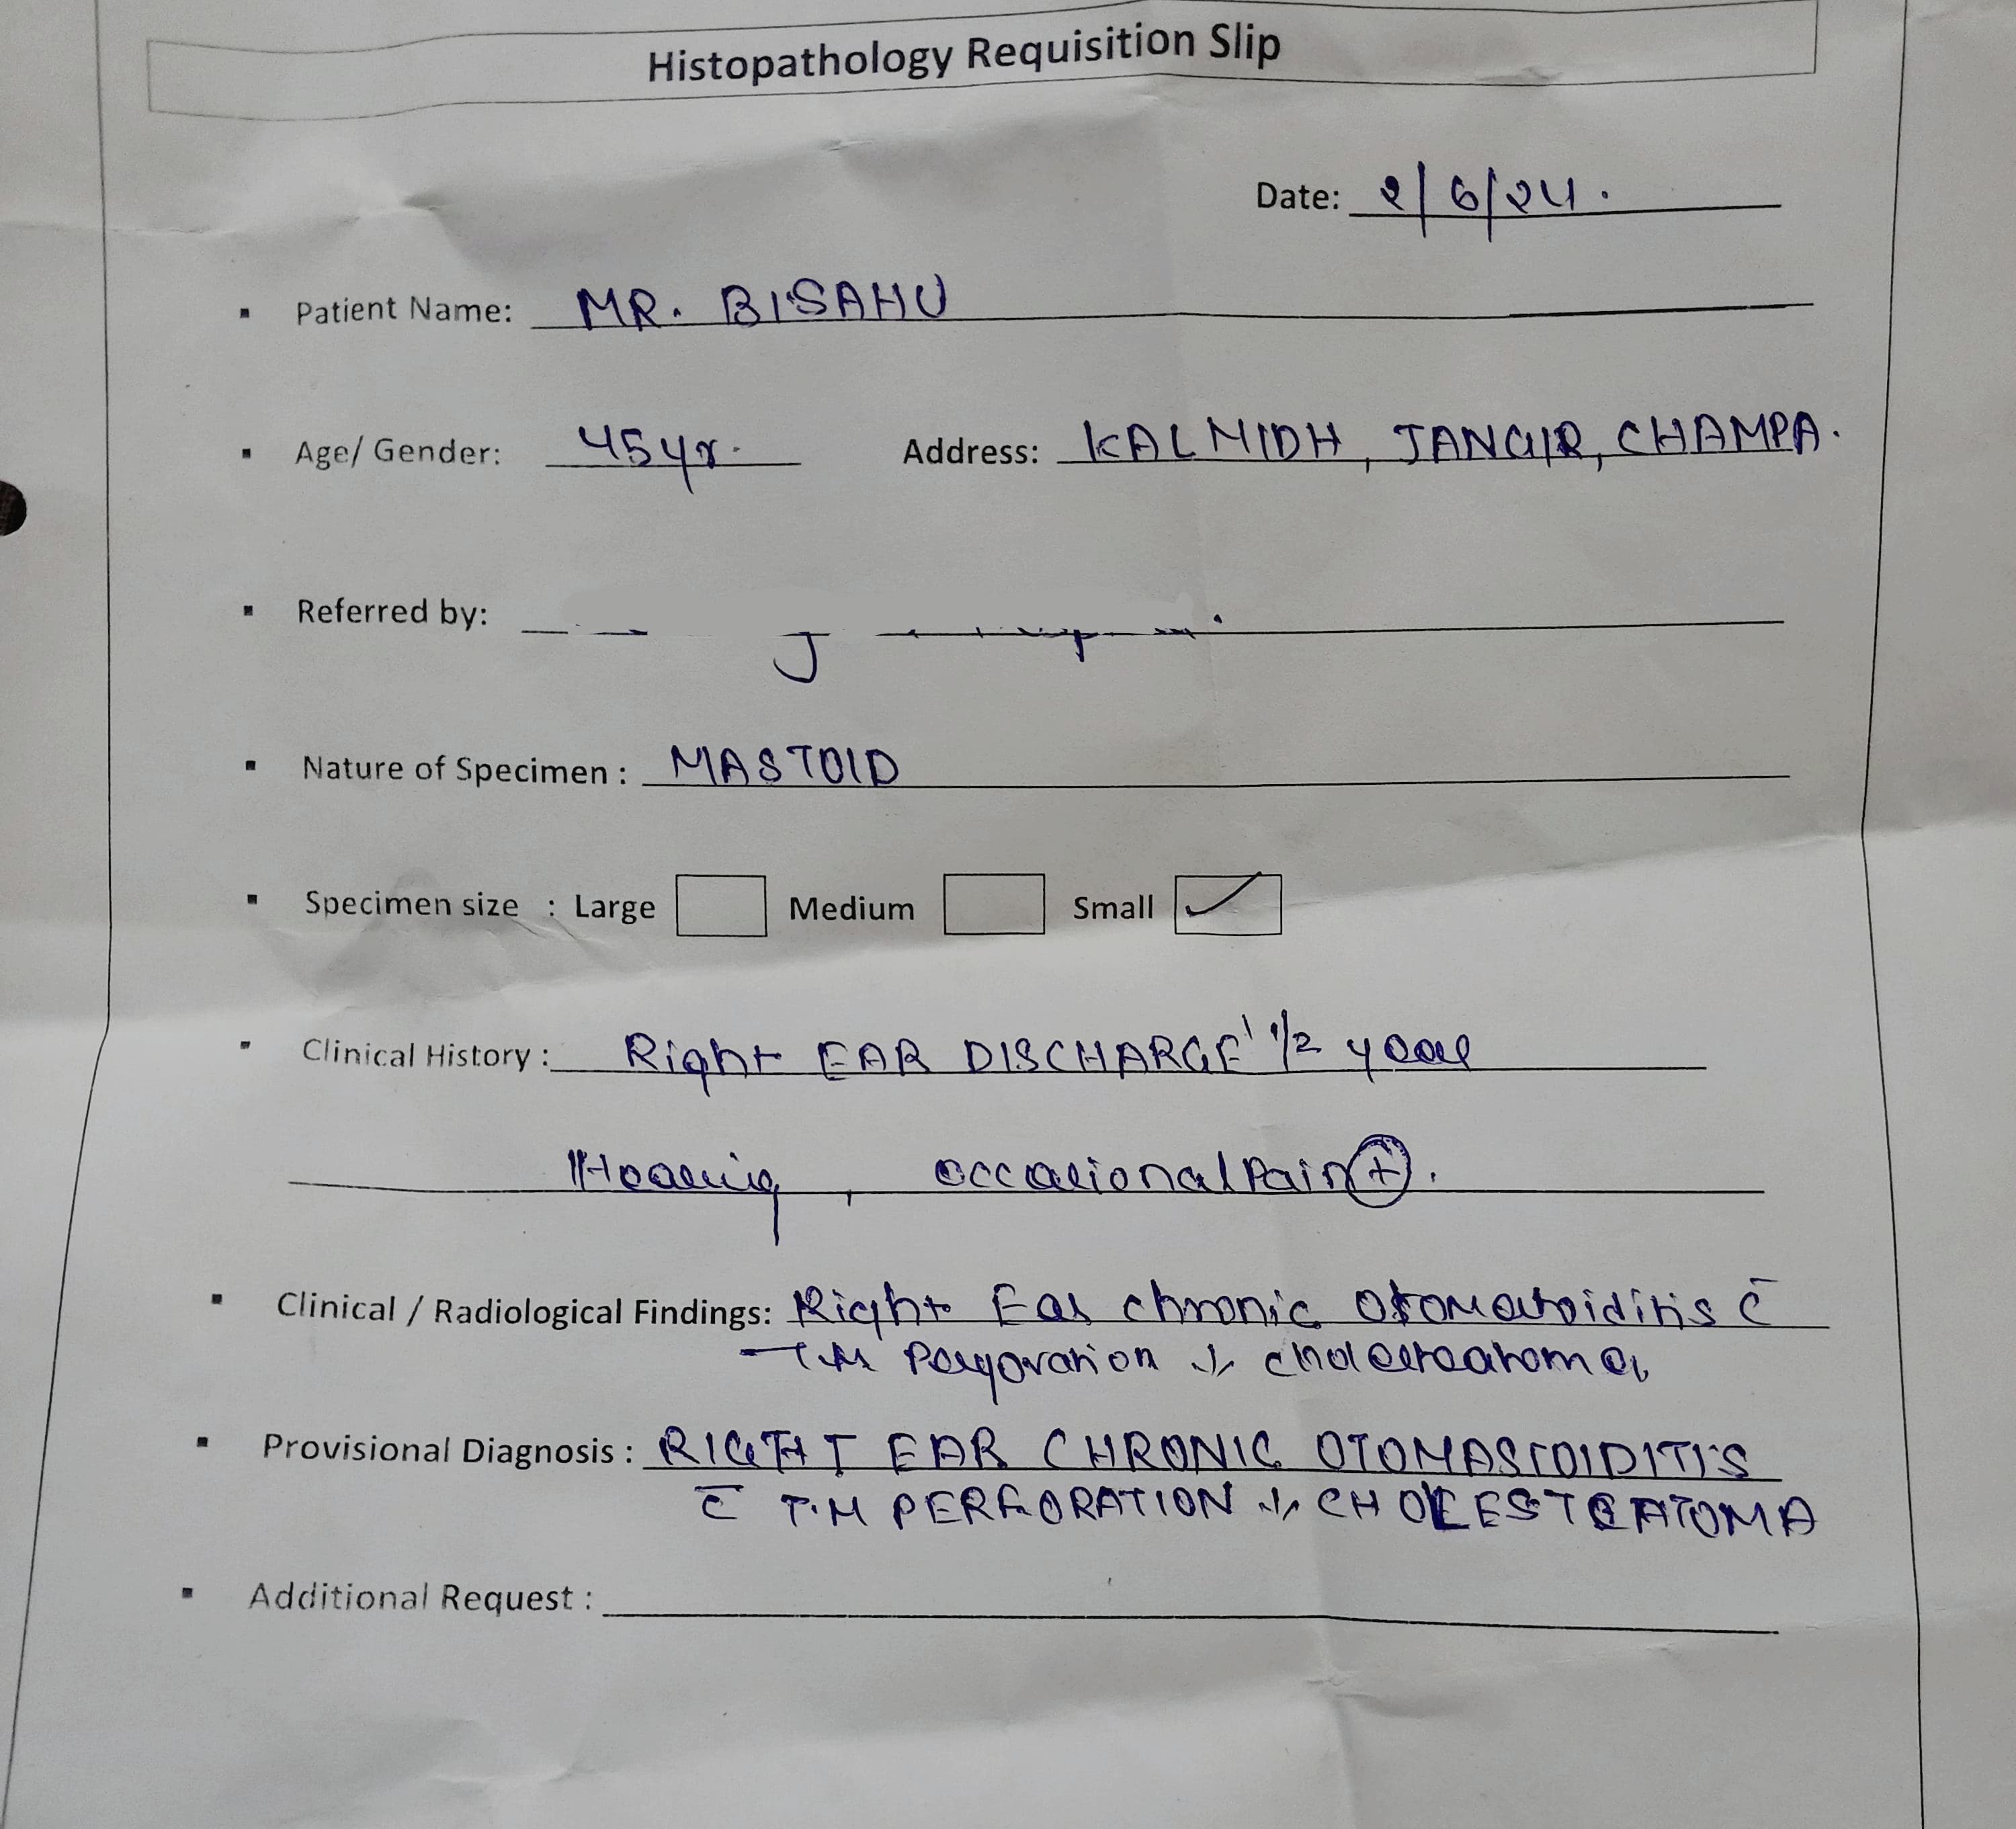 Histopathology Requisition Slip
Date: 2/6/24.
▪ Patient Name: MR. BISAHU
▪ Age/ Gender: 45yr. Address: KALMIDH, JANGIR, CHAMPA.
▪ Referred by:
▪ Nature of Specimen : MASTOID
▪ Specimen size : Large Medium Small ✓
▪ Clinical History : Right EAR DISCHARGE 1 1/2 year
Hearing, occasional Pain (+).
▪ Clinical / Radiological Findings: Right Ear chronic otomastoiditis c̄
T.M Perforation cholesteatoma
▪ Provisional Diagnosis : RIGHT EAR CHRONIC OTOMASTOIDITIS
c̄ T.M PERFORATION CHOLESTEATOMA
▪ Additional Request :